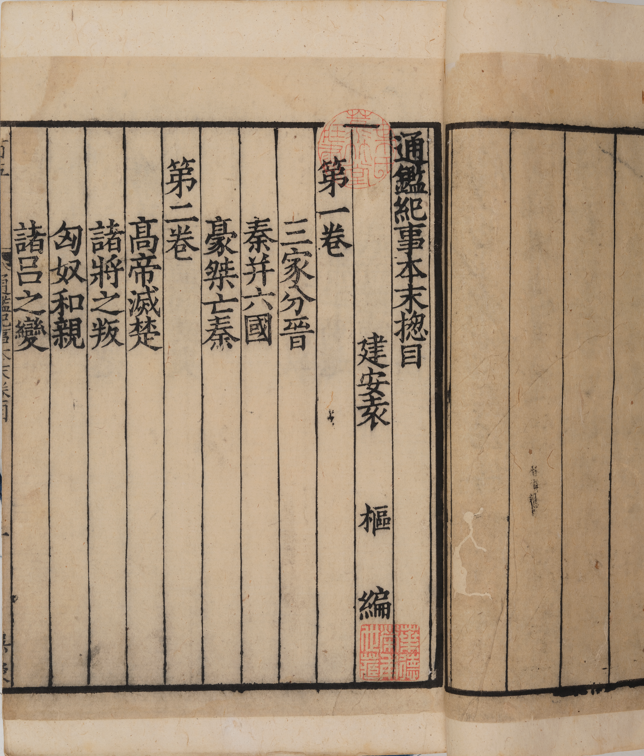 通鑑紀事本末揔目
建安袁樞編
第一卷
三家分晉
秦并六國
豪桀亡秦
第二卷
高帝滅楚
諸將之叛
匈奴和親
諸呂之變